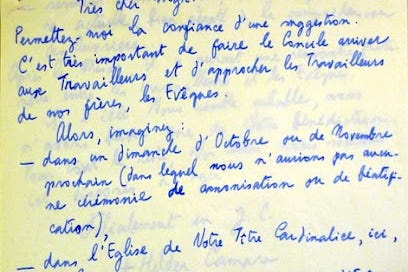 Très cher
Permettez-moi la confiance d'une suggestion.
C'est très important de faire le Concile arriver
aux Travailleurs et d'approcher les Travailleurs
de nos frères, les Evêques.
Alors, imaginez :
— dans un dimanche d'Octobre ou de Novembre
prochain (dans lequel nous n'aurions pas aucu-
ne cérémonie de canonisation ou de béatifi-
cation),
— dans l'Eglise de Votre Titre Cardinalice, ici,